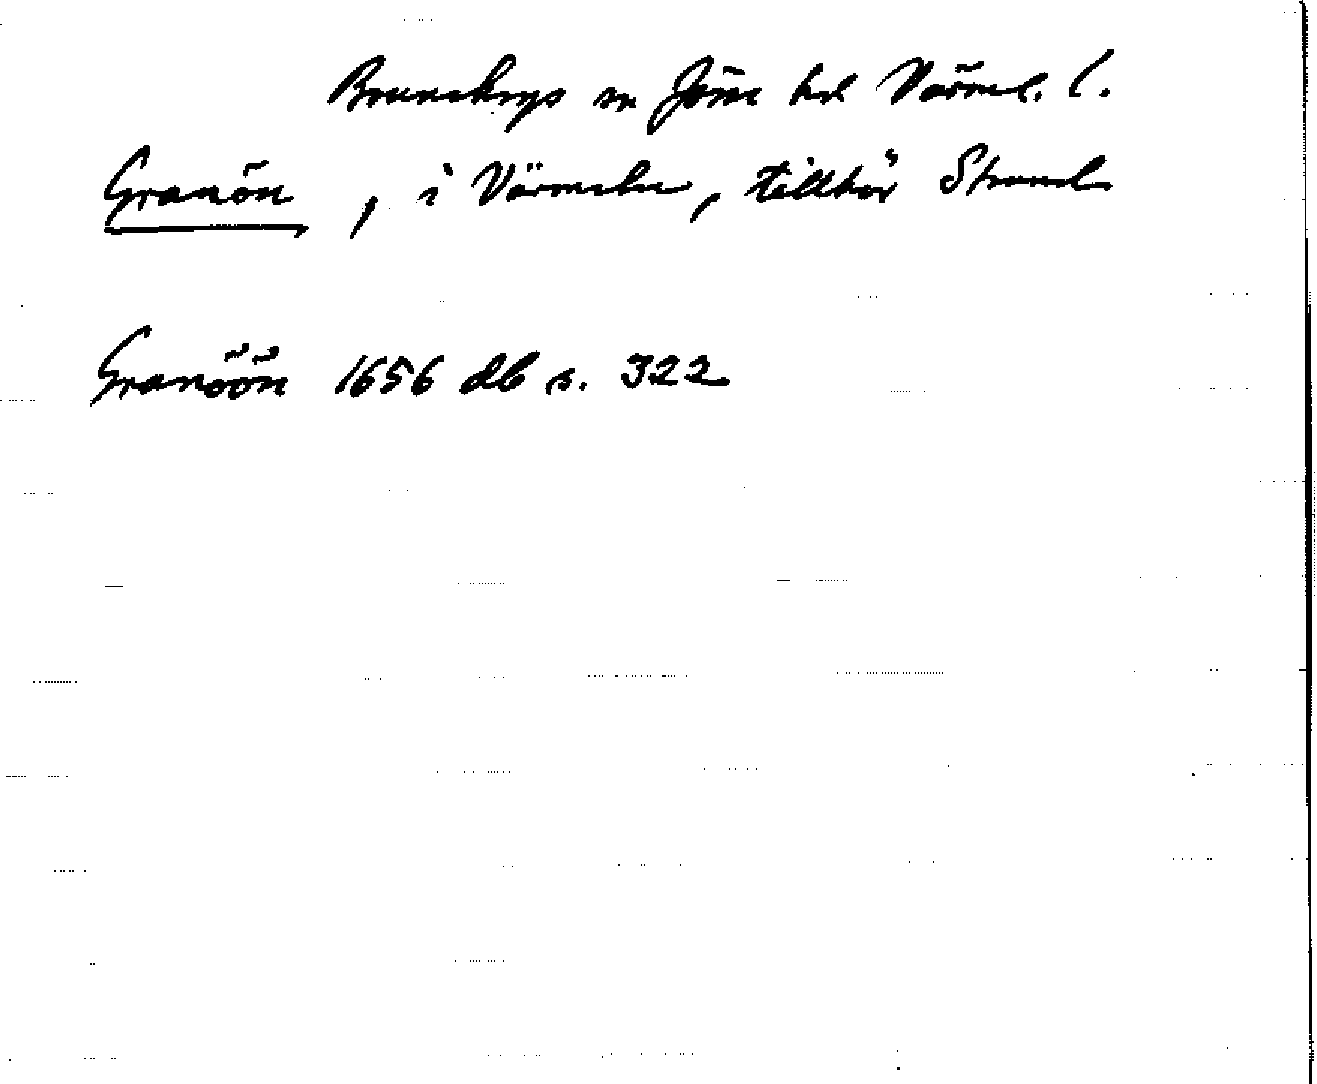 Brunskogs sn Jösse hd Värml. l.
Granön, i Värmeln, tillhör Strand
Granöön 1656 db s. 322